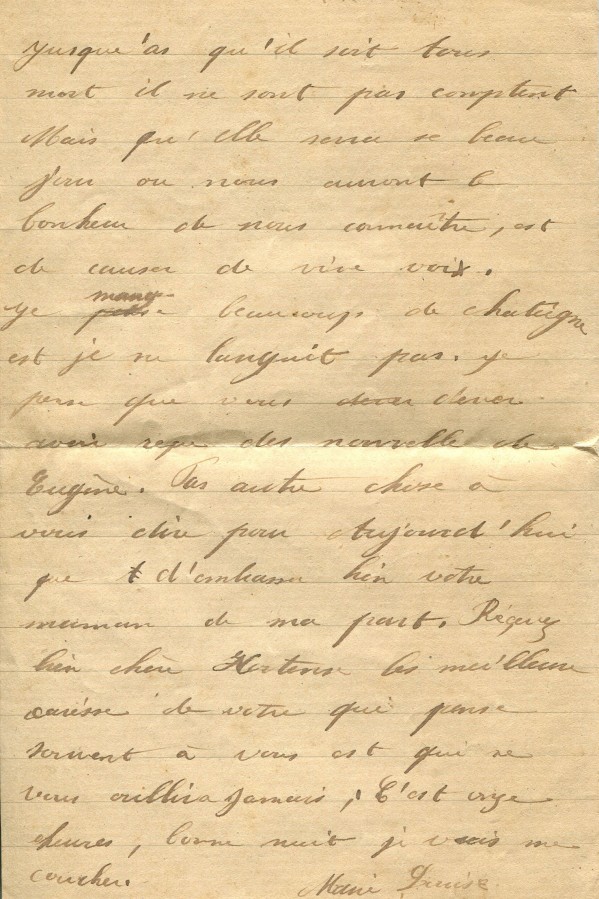 Jusque'as qu'il soit tous
mort il ne sont pas comptent
Mais qu'elle sera se beau
jour ou nous auront le
bonheur de nous connaître, est
de causer de vive voix.
Je mange beaucoups de chataigne
est je ne languit pas. Je
pense que vous dever
avoir reçu des nouvelle de
Eugène. Pas autre chose à
vous dire pour Aujourd'hui
que d'embrasser bien votre
maman de ma part. Réçevez
bien chère Hortense les meilleure
carèsse de votre qui pense
souvent à vous est qui ne
vous oublira Jamais, C'est onze
heures, bonne nuit je vais me
coucher. Marie Louise